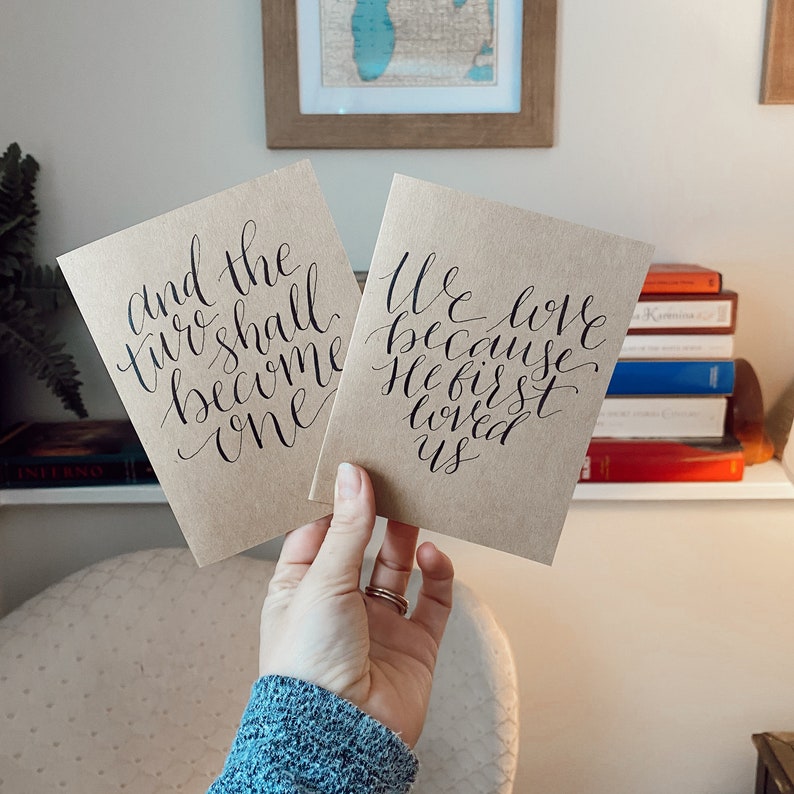 and the
two shall
become
one
We love
because
He first
loved
us
Karenina
INFERNO